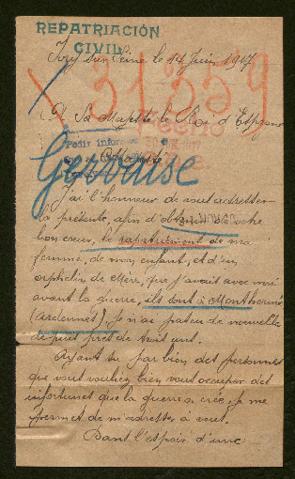 REPATRIACIÓN
CIVIL
Ivry sur Seine le 14 Juin 1917
31359
A Sa Majesté le Roi d'Espagne
Pedir informes
Gervaise
J'ai l'honneur de vous adresser
la présente, afin d'obtenir de votre
bon coeur, le repatriement de ma
femme, de mon enfant, et d'un
orphelin de Mère, que j'avais avec moi
avant la guerre, ils sont à Monthermé
(Ardennes), Je n'ai pas eu de nouvelle
depuis près de huit
Ayant su par bien des personnes
que vous vouliez bien vous occuper des
infortunes que la guerre a créé, je me
permet de m'adresser à vous.
Dans l'espoir d'une